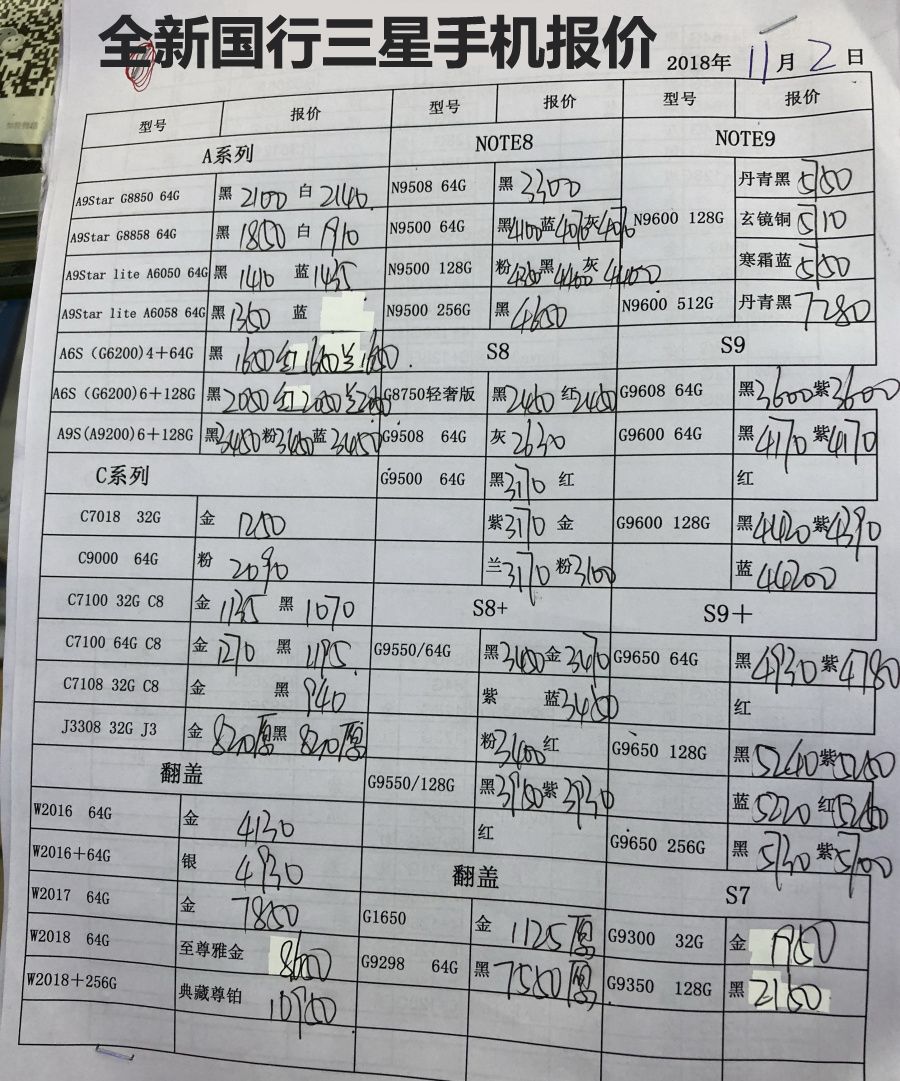 全新国行三星手机报价
2018年 11 月 2 日
型号 报价 型号 报价 型号 报价
A系列 NOTE8 NOTE9
A9Star G8850 64G 黑 2100 白 2140 N9508 64G 黑 3300 N9600 128G 丹青黑
A9Star G8858 64G 黑 1850 白 1910 N9500 64G 黑4100蓝4070灰4070 玄镜铜
A9Star lite A6050 64G 黑 1410 蓝 1435 N9500 128G 粉 黑 灰 寒霜蓝
A9Star lite A6058 64G 黑 1350 蓝 N9500 256G 黑 4650 N9600 512G 丹青黑 7280
A6S (G6200)4+64G 黑 1650 红 1650 兰 1650 S8 S9
A6S (G6200)6+128G 黑 2050 红 2050 兰 2050 G8750轻奢版 黑 2450 红 2450 G9608 64G 黑 3600 紫 3600
A9S(A9200)6+128G 黑 3450 粉 3450 蓝 3450 G9508 64G 灰 2630 G9600 64G 黑 4170 紫 4170
C系列 G9500 64G 黑 3170 红 红
C7018 32G 金 1250 紫 3170 金 G9600 128G 黑 4420 紫 4390
C9000 64G 粉 2090 兰 3170 粉 3100 蓝
C7100 32G C8 金 1135 黑 1070 S8+ S9＋
C7100 64G C8 金 1270 黑 1195 G9550/64G 黑 3450 金 3470 G9650 64G 黑 4930 紫 4780
C7108 32G C8 金 黑 940 紫 蓝 3450 红
J3308 32G J3 金 820原 黑 820原 粉 3400 红 G9650 128G 黑 5240 紫
翻盖 G9550/128G 黑 紫 3930 蓝 5220 红
W2016 64G 金 4130 红 G9650 256G 黑 5730 紫 5700
W2016+64G 银 4930 翻盖 S7
W2017 64G 金 7850 G1650 金 1125原 G9300 32G 金 1950
W2018 64G 至尊雅金 8600 G9298 64G 黑 7550原 G9350 128G 黑 2150
W2018+256G 典藏尊铂 10950